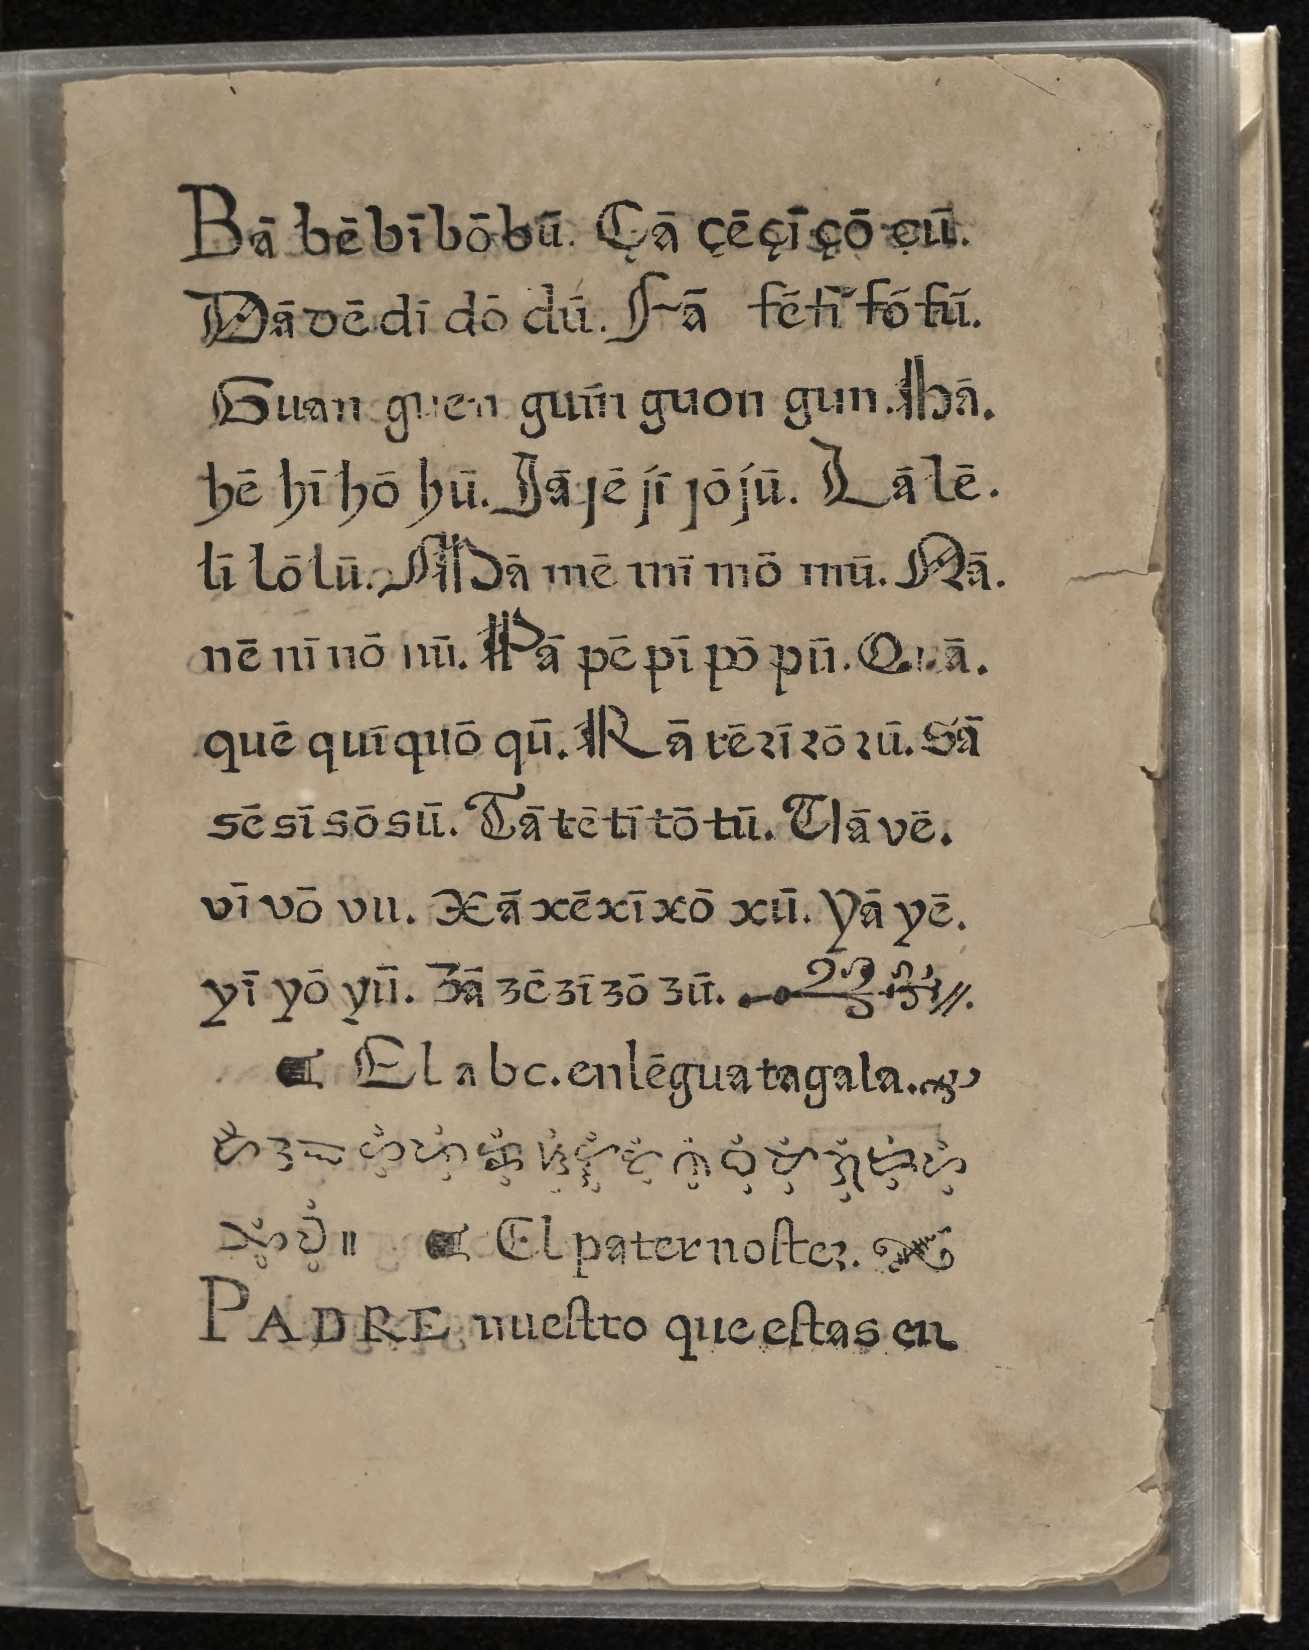 Bā bē bī bō bū. Çā çē çī çō çū.
Dā dē dī dō dū. Fā fē fī fō fū.
Guan guen guin guon gun. Hā.
hē hī hō hū. Jā jē jī jō jū. Lā lē.
lī lō lū. Mā mē mī mō mū. Nā.
nē nī nō nū. Pā pē pī pō pū. Quā.
quē quī quō qū. Rā rē rī rō rū. Sā
sē sī sō sū. Tā tē tī tō tū. Vā vē.
vī vō vu. Xā xē xī xō xū. Yā yē.
yī yō yū. Zā zē zī zō zū.
El abc. en lēgua tagala.
El pater noſter.
PADRE nueſtro que eſtas en